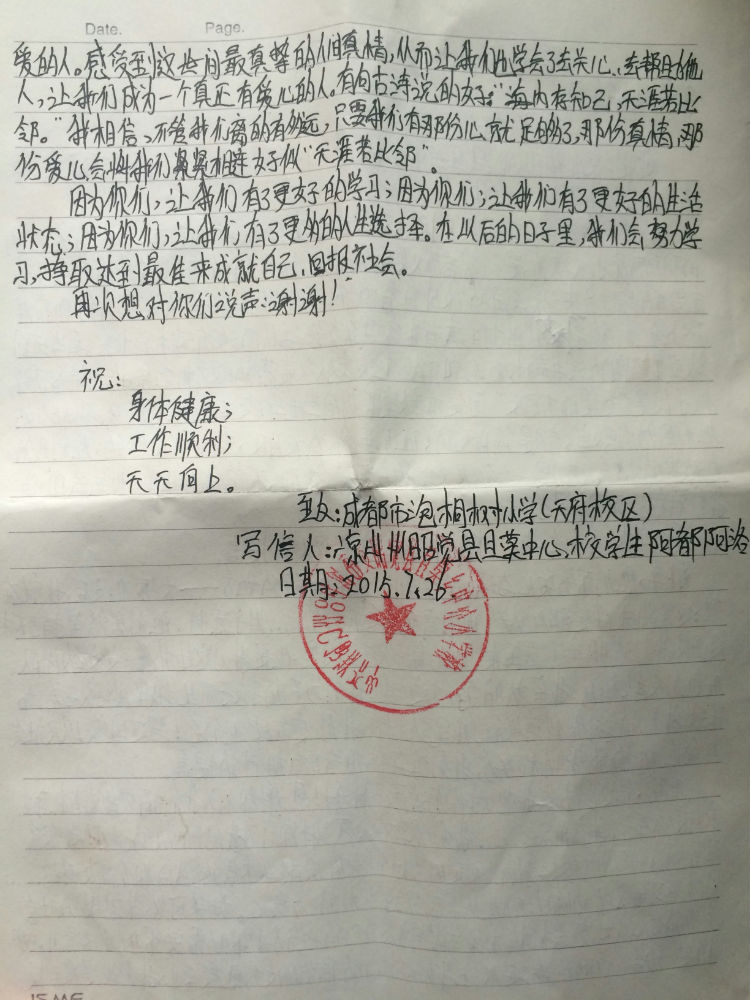 Date. Page.
爱的人。感受到这世间最真挚的人间真情,从而让我们也学会了去关心、去帮助他
人,让我们成为一个真正有爱心的人。有句古诗说的好:"海内存知己,天涯若比
邻。"我相信,不管我们离的有多远,只要我们有那份心就足够了,那份真情,那
份爱心会将我们紧紧相连好似"天涯若比邻"。
因为你们,让我们有了更好的学习;因为你们;让我们有了更好的生活
状态;因为你们,让我们有了更多的人生选择。在以后的日子里,我们会努力学
习,争取达到最佳来成就自己,回报社会。
再次想对你们说声:谢谢!
祝:
身体健康;
工作顺利;
天天向上。
致:成都市泡桐树小学(天府校区)
写信人:凉山州昭觉县且莫中心校学生阿都阿洛
日期:2015.1.26.